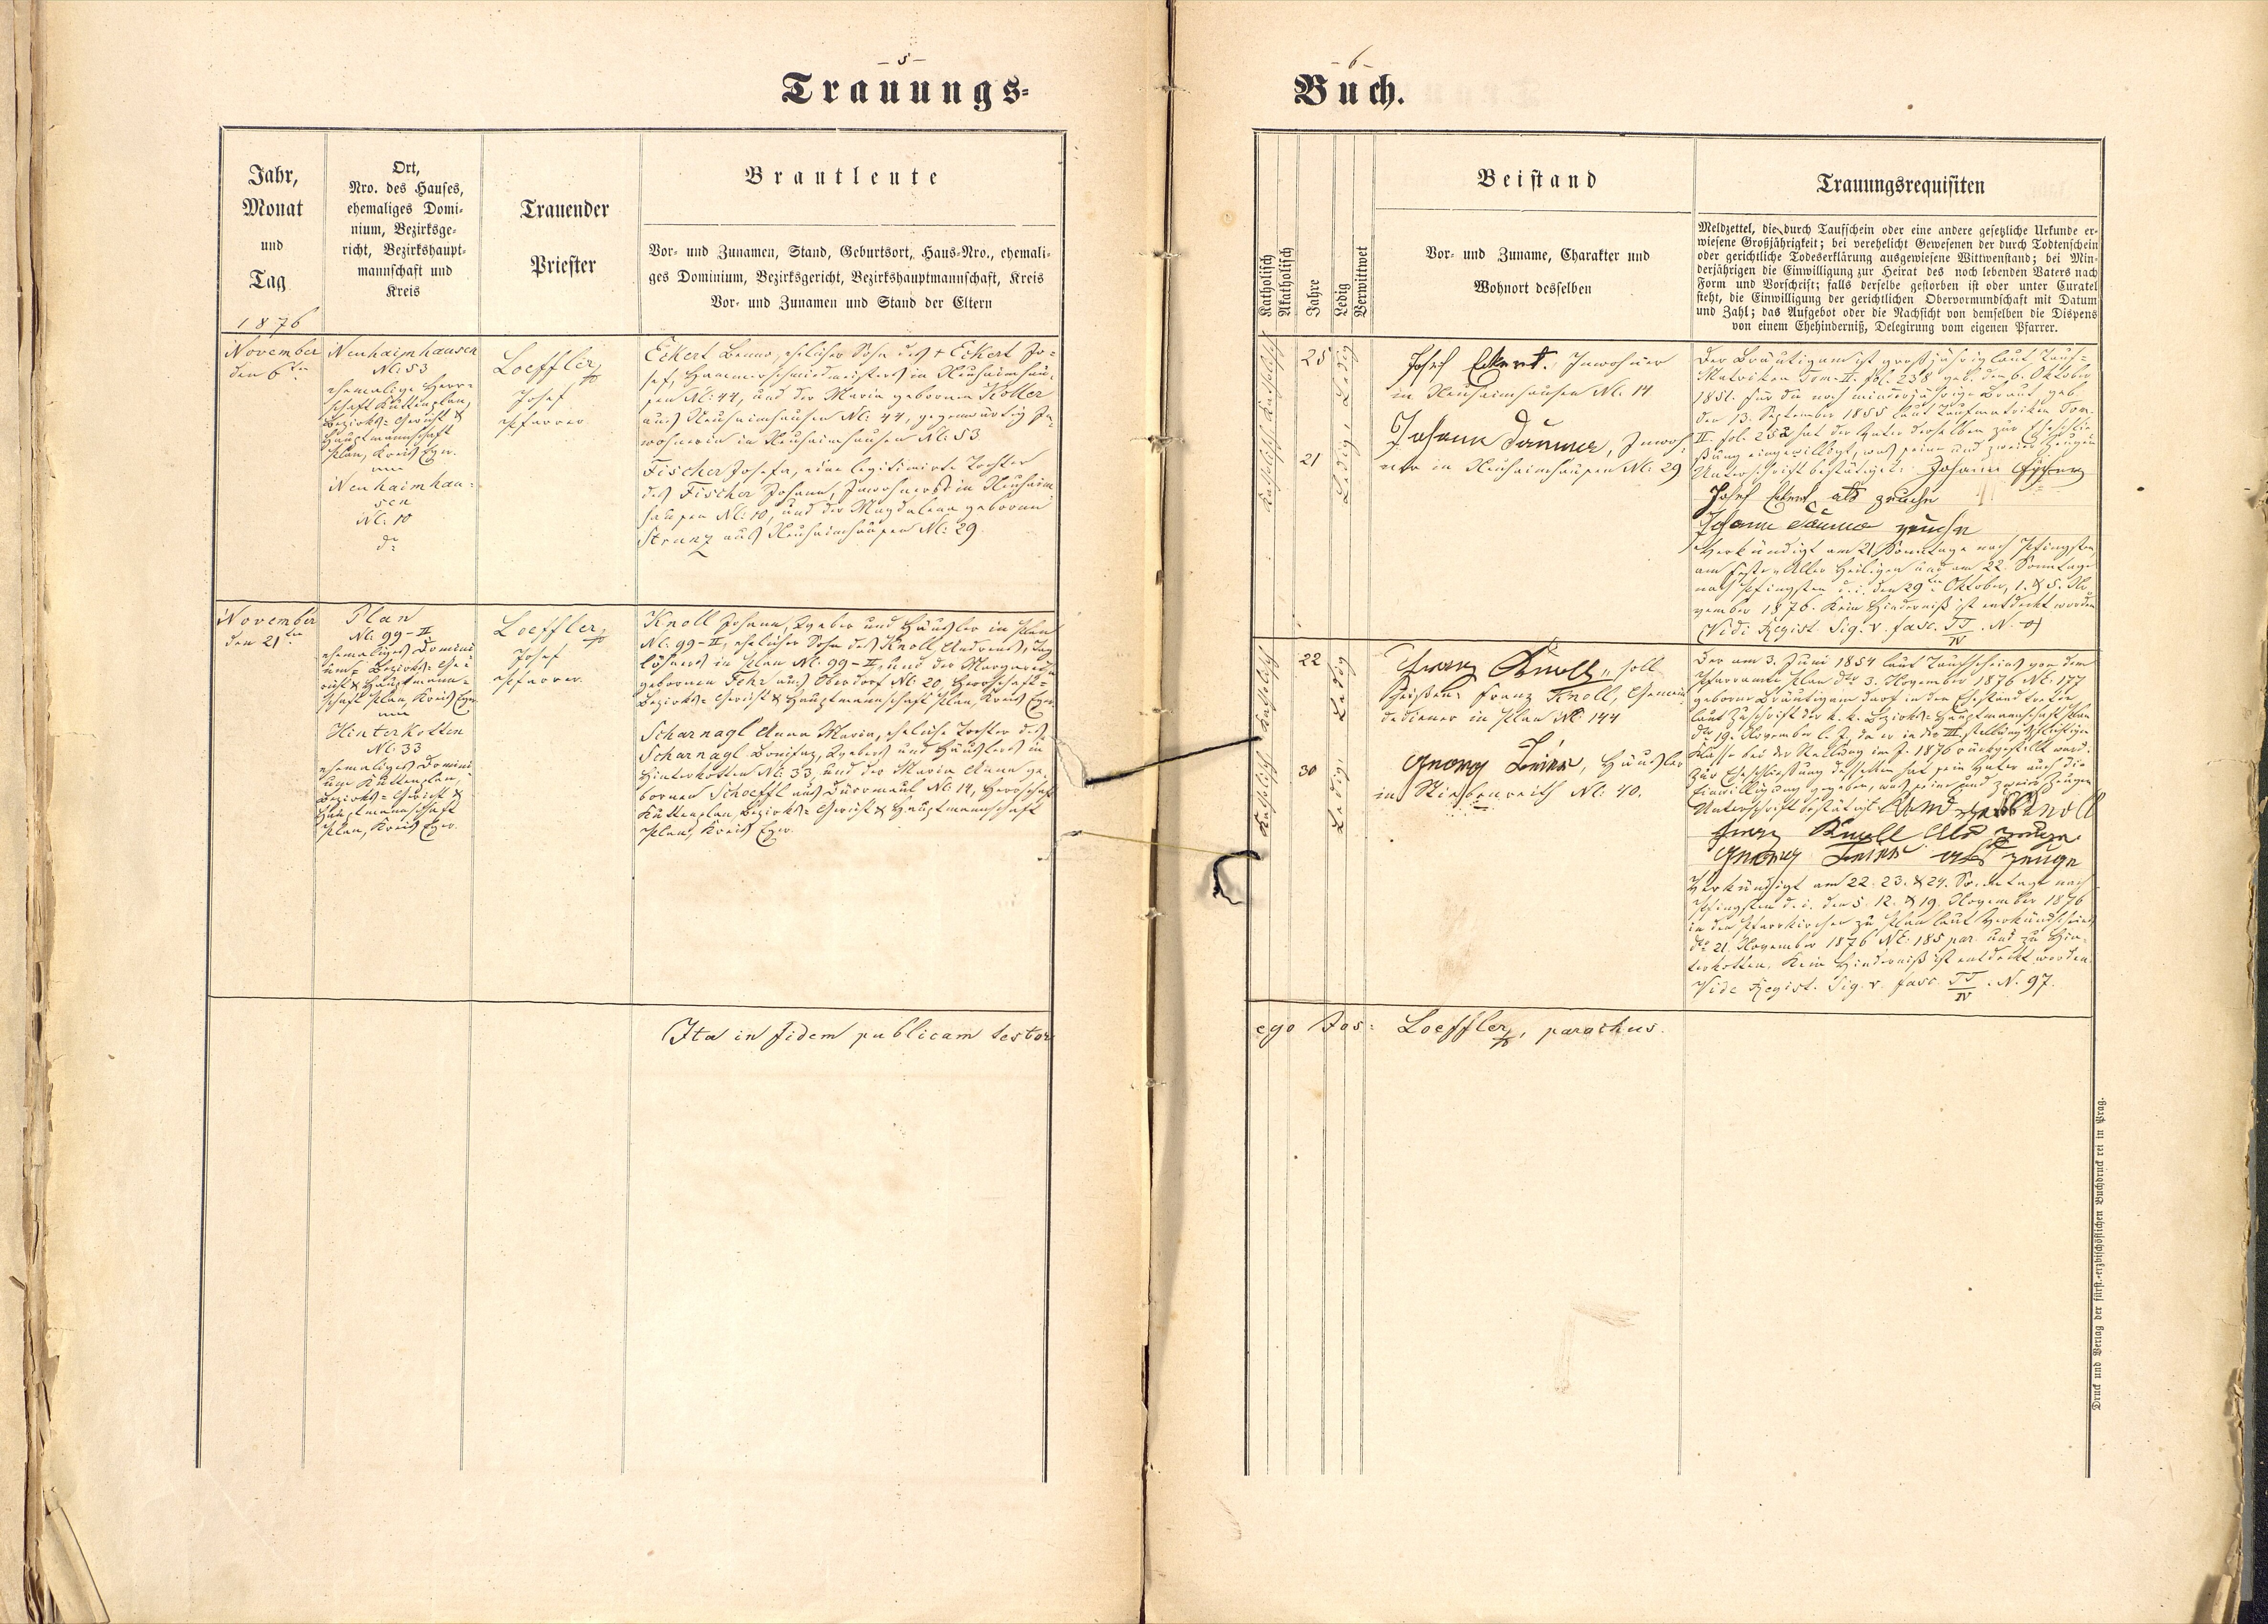 – 5 –
Trauungs-
Jahr,
Monat
und
Tag
1876
Ort,
Nro. des Hauses,
ehemaliges Domi-
nium, Bezirksge-
richt, Bezirkshaupt-
mannschaft und
Kreis
Trauender
Priester
Brautleute
Vor- und Zunamen, Stand, Geburtsort, Haus-Nro., ehemali-
ges Dominium, Bezirksgericht, Bezirkshauptmannschaft, Kreis
Vor- und Zunamen und Stand der Eltern
November
den 6ten
Neuhaimhausen
N: 53
ehemalige Herr-
schaft Kuttenplan,
Bezirks-Gericht &
Hauptmannschaft
Plan, Kreis Eger.
Neuhaimhau-
sen
N: 10
dto
Loeffler
Josef
Pfarrer
Eckert Benno, ehelicher Sohn des + Eckert Jo-
sef, Hammerschmiedmeisters in Neuhaimhau-
sen N: 44, und der Maria gebornen Koller
aus Neuhaimhausen N: 44, gegenwärtig In-
wohnerin in Neuhaimhausen N: 53
Fischer Josefa, eine legitimirte Tochter
des Fischer Johann, Inwohners in Neuhaim-
hausen N: 10, und der Magdalena gebornen
Strunz aus Neuhaimhausen N: 29.
November
den 21ten
Plan
N: 99-II
ehemaliges Domini-
um, Bezirks-Ge-
richt & Hauptmann-
schaft Plan, Kreis Eger
Hinterkotten
N: 33
ehemaliges Domini-
um Kuttenplan,
Bezirks-Gericht &
Hauptmannschaft
Plan, Kreis Eger.
Loeffler
Josef
Pfarrer
Knoll Johann, Weber und Häusler in Plan
N: 99-II, ehelicher Sohn des Knoll Andreas, Tag-
löhners in Plan N: 99-II, und der Margareta
gebornen Fehr aus Oberdorf N: 20, Herrschaft-
Bezirks-Gericht & Hauptmannschaft Plan, Kreis Eger.
Scharnagl Anna Maria, eheliche Tochter des
Scharnagl Bonifaz, Webers und Häuslers in
Hinterkotten N: 33, und der Maria Anna ge-
bornen Schoeffl aus Dürrmaul N: 14, Herrschaft
Kuttenplan, Bezirks-Gericht & Hauptmannschaft
Plan, Kreis Eger.
Ita in fidem publicam testor
– 6 –
Buch.
Katholisch
Akatholisch
Jahre
Ledig
Verwittwet
Beistand
Vor- und Zuname, Charakter und
Wohnort desselben
Trauungsrequisiten
Meldzettel, die durch Taufschein oder eine andere gesetzliche Urkunde er-
wiesene Großjährigkeit; bei verehelicht Gewesenen der durch Todtenschein
oder gerichtliche Todeserklärung ausgewiesene Wittwenstand; bei Min-
derjährigen die Einwilligung zur Heirat des noch lebenden Vaters nach
Form und Vorschrift; falls derselbe gestorben ist oder unter Curatel
steht, die Einwilligung der gerichtlichen Obervormundschaft mit Datum
und Zahl; das Aufgebot oder die Nachsicht von demselben die Dispens
von einem Ehehinderniß, Delegirung vom eigenen Pfarrer.
Katholisch
25
Ledig
Katholisch
21
Ledig,
Josef Eckert. Inwohner
in Neuhaimhausen N: 14
Johann Daumer, Inwoh-
ner in Neuhaimhausen N: 29
Der Bräutigam ist großjährig laut Tauf-
Matriken Tom. II. fol. 238 geb. den 6. Oktober
1851. für die noch minderjährige Braut geb
den 13. September 1855 laut Taufmatriken Tom.
II. fol. 252 hat der Vater derselben zur Eheschlie-
ßung eingewilligt, was seine und zweier Zeugen
Unterschrift bestätiget: Johann
Josef Eckert als zeuche
Johann Daumer zeuche
Verkündigt am 21. Sonntage nach Pfingsten
am Feste Aller Heiligen und am 22. Sonntage
nach Pfingsten d. i. den 29ten Oktober, 1. & 5. No-
vember 1876. Kein Hinderniß ist entdeckt worden
(Vidi Regist. Sig. v. fasc. TT/IV. N.
Katholisch
22
Ledig
Katholisch
30
Ledig,
Franz Knoll, soll
heißen: Franz Knoll, Gemein-
dediener in Plan N: 144
Georg Leier, Häusler
in Stiebenreith N: 40.
Der am 3. Juni 1854 laut Taufscheins von dem
Pfarramte Plan dto 3. November 1876 N: 177
geborne Bräutigam darf in den Ehestand treten
laut Zuschrift der k. k. Bezirks-Hauptmannschaft Plan
dto 19. November l. J., da er in der III stellungspflichtigen
Klasse bei der Stellung im J. 1876 rückgestellt ward.
Zur Eheschließung desselben hat sein Vater auch die
Einwilligung gegeben, was seine und zweier Zeugen
Unterschrift bestätigt: Andreas Knoll
Franz Knoll als zeuge.
Georg Leier als zeuge
Verkündigt am 22. 23. & 24. Sonntage nach
Pfingsten d. i. den 5. 12. & 19. November 1876
in der Pfarrkirche zu Plan laut Verkündschein
dto 21. November 1876 N: 185 par. und zu Hin-
terkotten. Kein Hinderniß ist entdeckt worden.
Vide Regist. Sig. v. fasc. TT/IV. N. 97.
ego Jos: Loeffler, parochus.
Druck und Verlag der fürst.-erzbischöflichen Buchdruckerei in Prag.